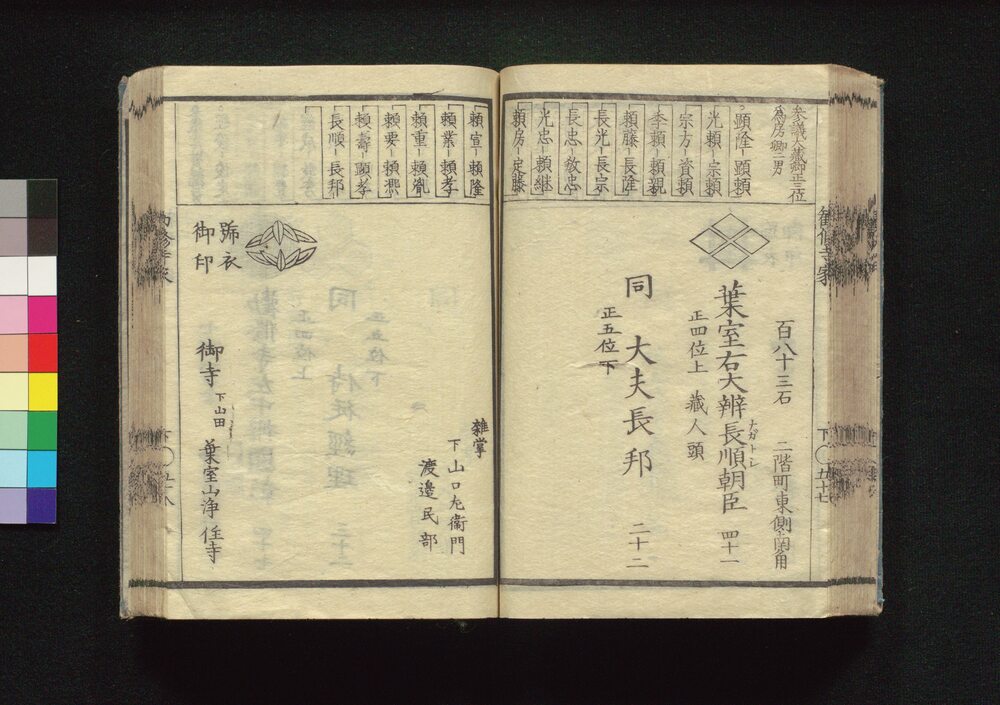 参議大藏卿正三位
為房卿二男
顕隆－顕頼
光頼－宗頼
宗方－資頼
季頼－頼親
頼藤－長隆
長光－長宗
長忠－教忠
光忠－頼継
頼房－定藤
百八十三石
二階町東側
葉室右大辨長順朝臣 四十一
ナガトシ
正四位上 藏人頭
同 大夫長邦 二十二
正五位下
勸修寺家
下〇五十七
頼宣－頼隆
頼業－頼孝
頼重－頼胤
頼要－頼熈
頼壽－顕孝
長順－長邦
雑掌
下山口左衞門
渡邉民部
號衣
御印
御寺 下山田 葉室山浄住寺